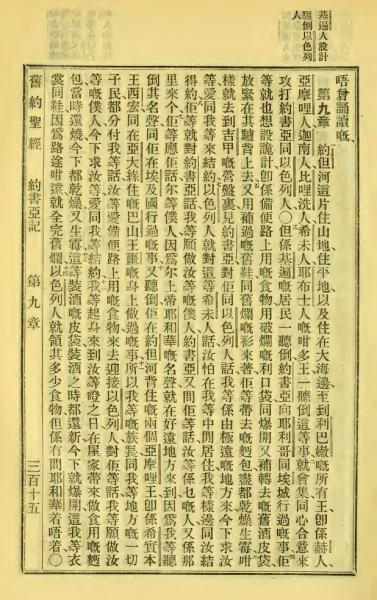 基遍人設計
騙倒以色列
人
唔曾誦讀嘅、
第九章 約但河這片住山地住平地以及住在大海邊至到利巴嫩嘅所有王卽係赫人、
亞摩哩人迦南人比哩洗人希未人耶布士人嘅咁多王一聽倒這等事就會集同心合意來
攻打約書亞同以色列人〇但係基遍嘅居民一聽倒約書亞向耶利哥同埃城行過嘅事佢
等就也想設詭計卽係備便路上用嘅食物用破爛嘅利口袋同爆開又補轉去嘅舊酒皮袋
放緊在其驢背上去又用補過嘅舊鞋同舊爛嘅衫來著佢等帶去嘅麪包盡都乾燥生霉咁
樣就去到吉甲嘅營盤裏見約書亞對佢同以色列人話我等係由極遠嘅地方來今下求汝
等愛同我等來結約以色列人就對這等希未人話汝怕在我等中間居住我等樣邊同汝結
得約佢等就對約書亞話我等願做汝等嘅僕人約書亞又問佢等話汝等係乜嘅人又係那
里來个佢等應佢話尔等僕人因爲尔上帝耶和華嘅名聲就在好遠地方來到因爲我等聽
倒其名聲同佢在埃及國行過嘅事又聽倒佢在約但河背住嘅兩個亞摩哩王卽係希實本
王西宏同在亞大綠住嘅巴山王噩嘅身上做過嘅事所以我等嘅族長同我等地方嘅一切
子民都分付我等話汝等愛備便路上用嘅食物來去迎接以色列人對佢等話我等願做汝
等嘅僕人今下求汝等愛同我等結約我等起身來到汝等嗰之日在屋家帶來做食用嘅麪
包當時還燒今下都乾燥又生霉這等裝酒嘅皮袋裝酒之時都還新今下就爆開這我等衣
裳同鞋因爲路途咁遠就全完舊爛以色列人就領其多少食物但係冇問耶和華着唔着〇
舊約聖經 約書亞記 第九章 三百十五